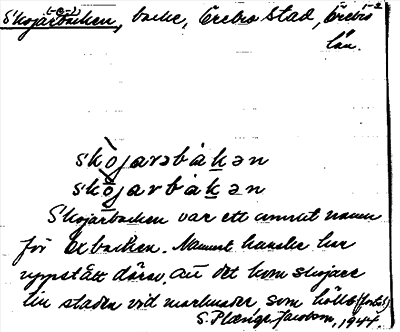 (-e-) 1-2
Skojarbacken, backe, Örebro stad, Örebro
län.
skòjarəbàkən
skòjarbàkən
Skojarbacken var ett annat namn
för Oxbacken. Namnet kanske har
uppstått därav, att det kom skojare
till staden vid marknader som hölls (forts)
S. Plænge-Jacobson, 1944.